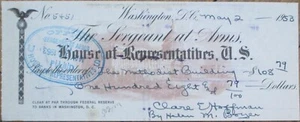 No 5451 Washington, D.C. May 2 1953
The Sergeant at Arms,
House of Representatives, U.S.
Pay to the order of Methodist Building $108 79
One Hundred Eight & 79 Dollars.
CLEAR AT PAR THROUGH FEDERAL RESERVE
TO BANKS IN WASHINGTON, D.C.
Clare E. Hoffman
By Helen M. Boyer